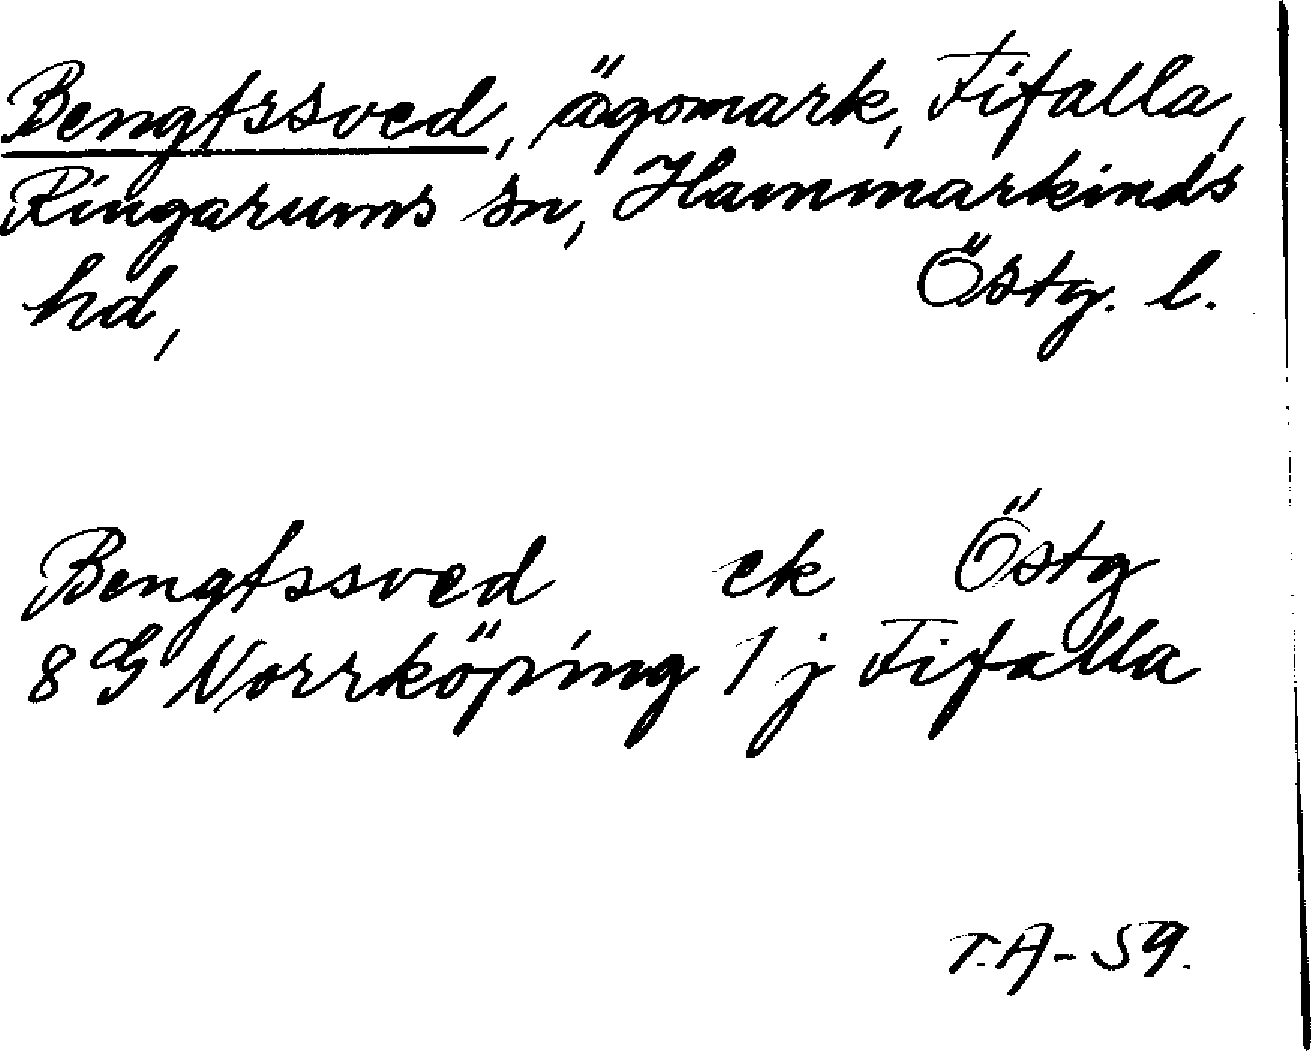 Bengtssved, ägomark, Fifalla,
Ringarums sn, Hammarkinds
hd, Östg. l.
Bengtssved ek Östg
8 G Norrköping 1 j Fifalla
T.A-59.